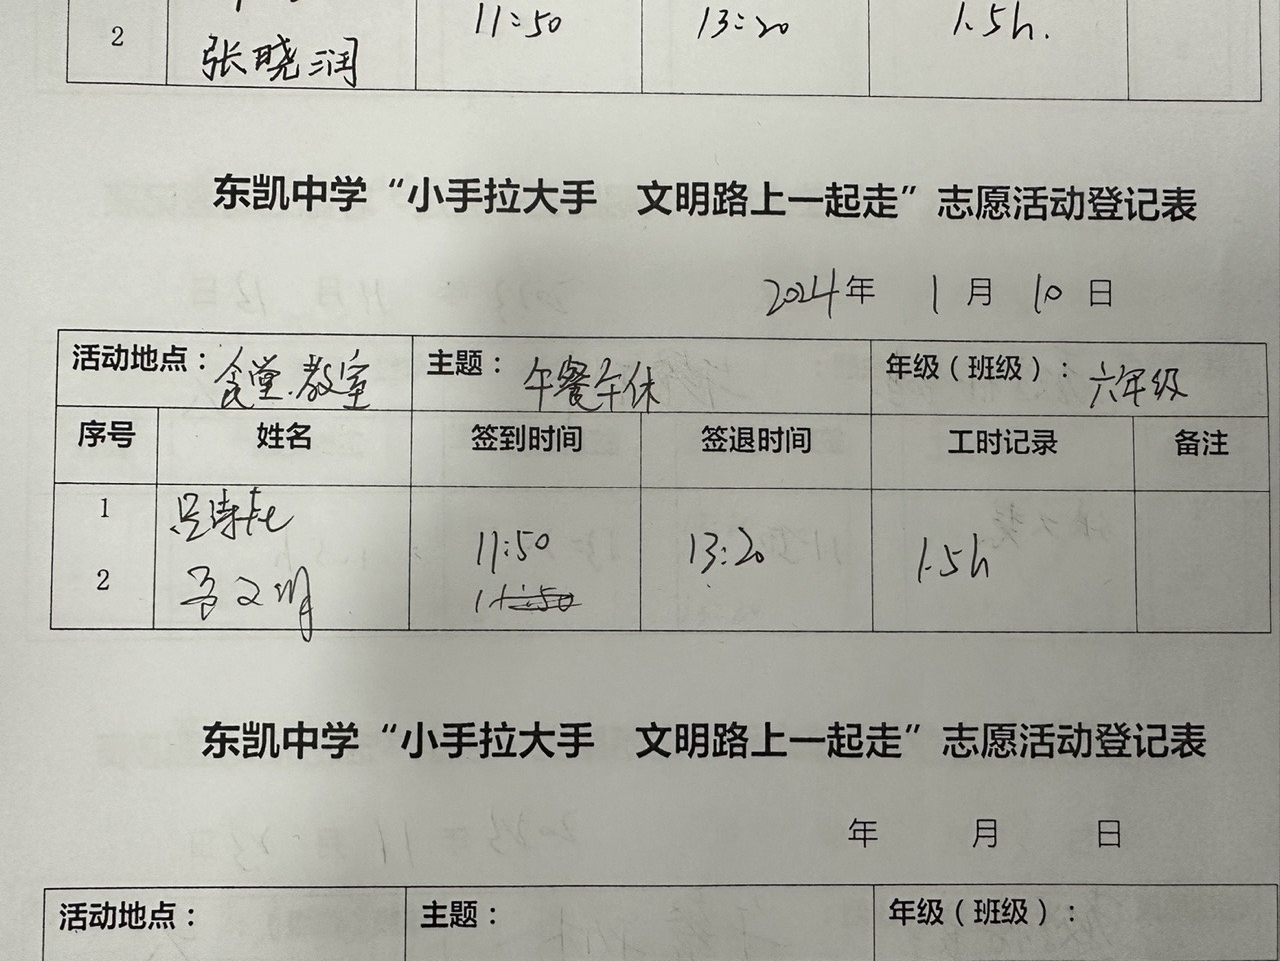 2
张晓润
11:50
13:20
1.5h.
东凯中学“小手拉大手 文明路上一起走”志愿活动登记表
2024年 1月 10日
活动地点：食堂.教室 主题：午餐午休 年级（班级）：六年级
序号 姓名 签到时间 签退时间 工时记录 备注
1
11:50 13:20 1.5h
2 11:50
东凯中学“小手拉大手 文明路上一起走”志愿活动登记表
年 月 日
活动地点： 主题： 年级（班级）：